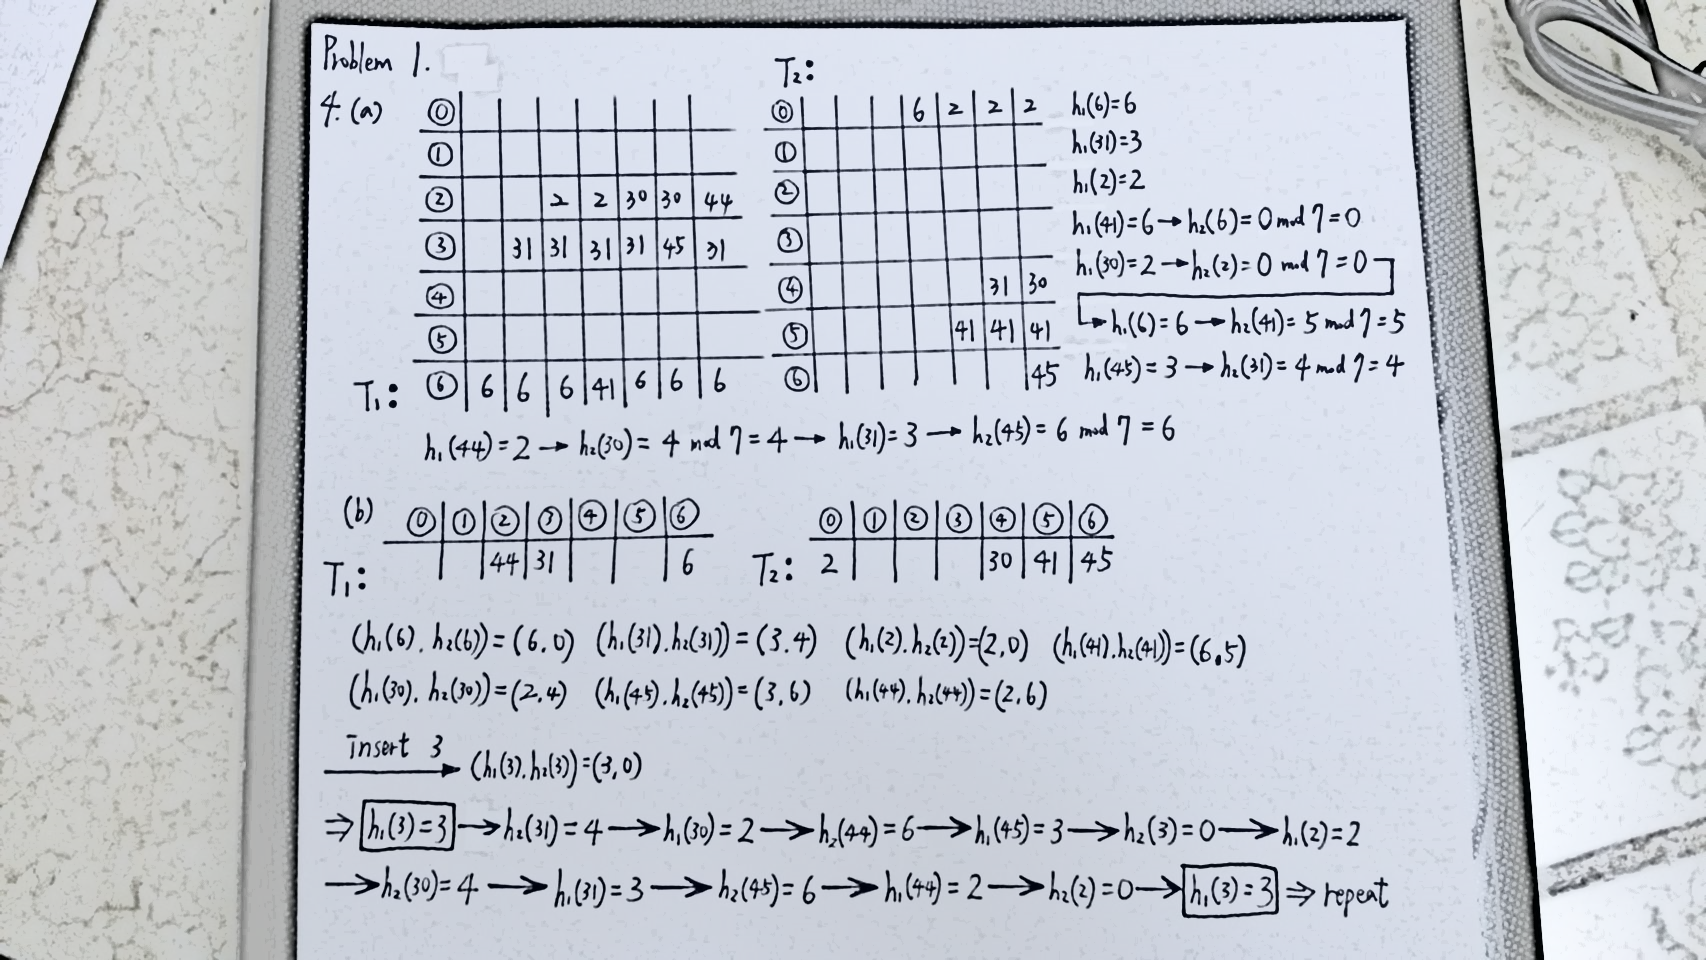 Problem 1.
4. (a)
T₁:
⓪
①
② 2 2 30 30 44
③ 31 31 31 31 45 31
④
⑤
⑥ 6 6 6 41 6 6 6
T₂:
⓪ 6 2 2 2
①
②
③
④ 31 30
⑤ 41 41 41
⑥ 45
h₁(6)=6
h₁(31)=3
h₁(2)=2
h₁(41)=6→h₂(6)=0 mod 7=0
h₁(30)=2→h₂(2)=0 mod 7=0
→h₁(6)=6→h₂(41)=5 mod 7=5
h₁(45)=3→h₂(31)=4 mod 7=4
h₁(44)=2→h₂(30)=4 mod 7=4→h₁(31)=3→h₂(45)=6 mod 7=6
(b)
T₁:
⓪ ① ② ③ ④ ⑤ ⑥
44 31 6
T₂:
⓪ ① ② ③ ④ ⑤ ⑥
2 30 41 45
(h₁(6).h₂(6))=(6.0) (h₁(31).h₂(31))=(3.4) (h₁(2).h₂(2))=(2,0) (h₁(41).h₂(41))=(6.5)
(h₁(30).h₂(30))=(2,4) (h₁(45).h₂(45))=(3,6) (h₁(44).h₂(44))=(2,6)
insert 3
→ (h₁(3).h₂(3))=(3,0)
⇒ h₁(3)=3→h₂(31)=4→h₁(30)=2→h₂(44)=6→h₁(45)=3→h₂(3)=0→h₁(2)=2
→h₂(30)=4→h₁(31)=3→h₂(45)=6→h₁(44)=2→h₂(2)=0→h₁(3)=3⇒repeat